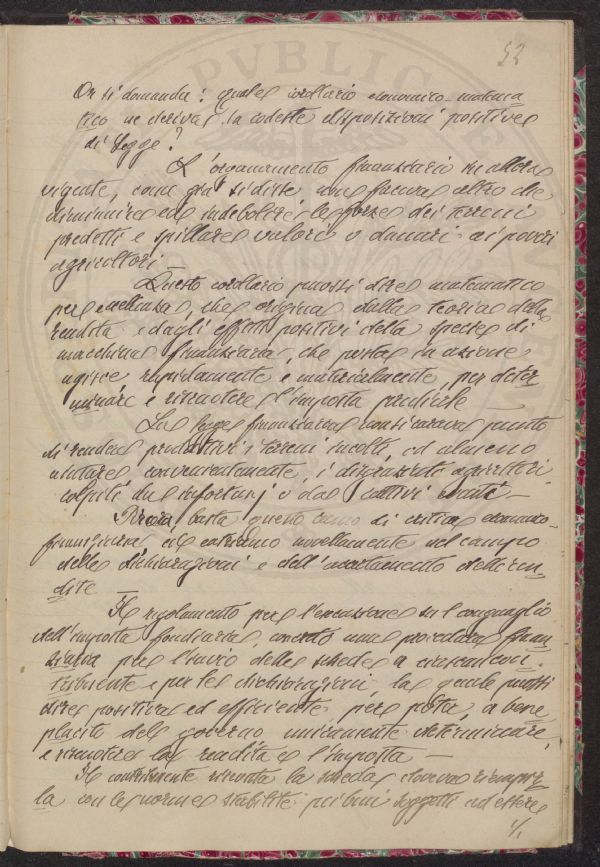 52
Or si domanda: quale corollario economico-matema
tico ne deriva da codeste disposizioni positive
di legge?
L'organamento finanziario in allora
vigente, come già si disse non faceva altro che
diminuire ed indebolire le forze dei terreni
predetti e spillare valori o danari ai poveri
agricoltori.
Questo corollario puossi dire matematico
per eccellenza, che origina dalla teoria della
rendita e dagli effetti positivi della specie di
macchina finanziaria, che posta in azione
agisce rapidamente e materialmente, per deter
minare e riscuotere l'imposta prediale —
La legge finanziaria non si curava punto
di rendere produttivi i terreni incolti, ed almeno
aiutare convenientemente, i disgraziati agricoltori
colpiti da infortunj o da cattivi
basta questo cenno di critica economico-
finanziaria ed entriamo novellamente nel campo
delle dichiarazioni e dell'accertamento delle ren
dite —
Il regolamento per l'esecuzione sul conguaglio
dell'imposta fondiaria, una procedura finan
ziaria per l'invio delle schede a ciascun con
tribuente e per le dichiarazioni, la quale puossi
dire positiva ed efficiente per, a bene
placito del governo unicamente determinare,
e riscuotere la rendita e l'imposta —
Il contribuente ricevuta la scheda doveva riempir
la con le norme stabilite pei beni soggetti ad essere